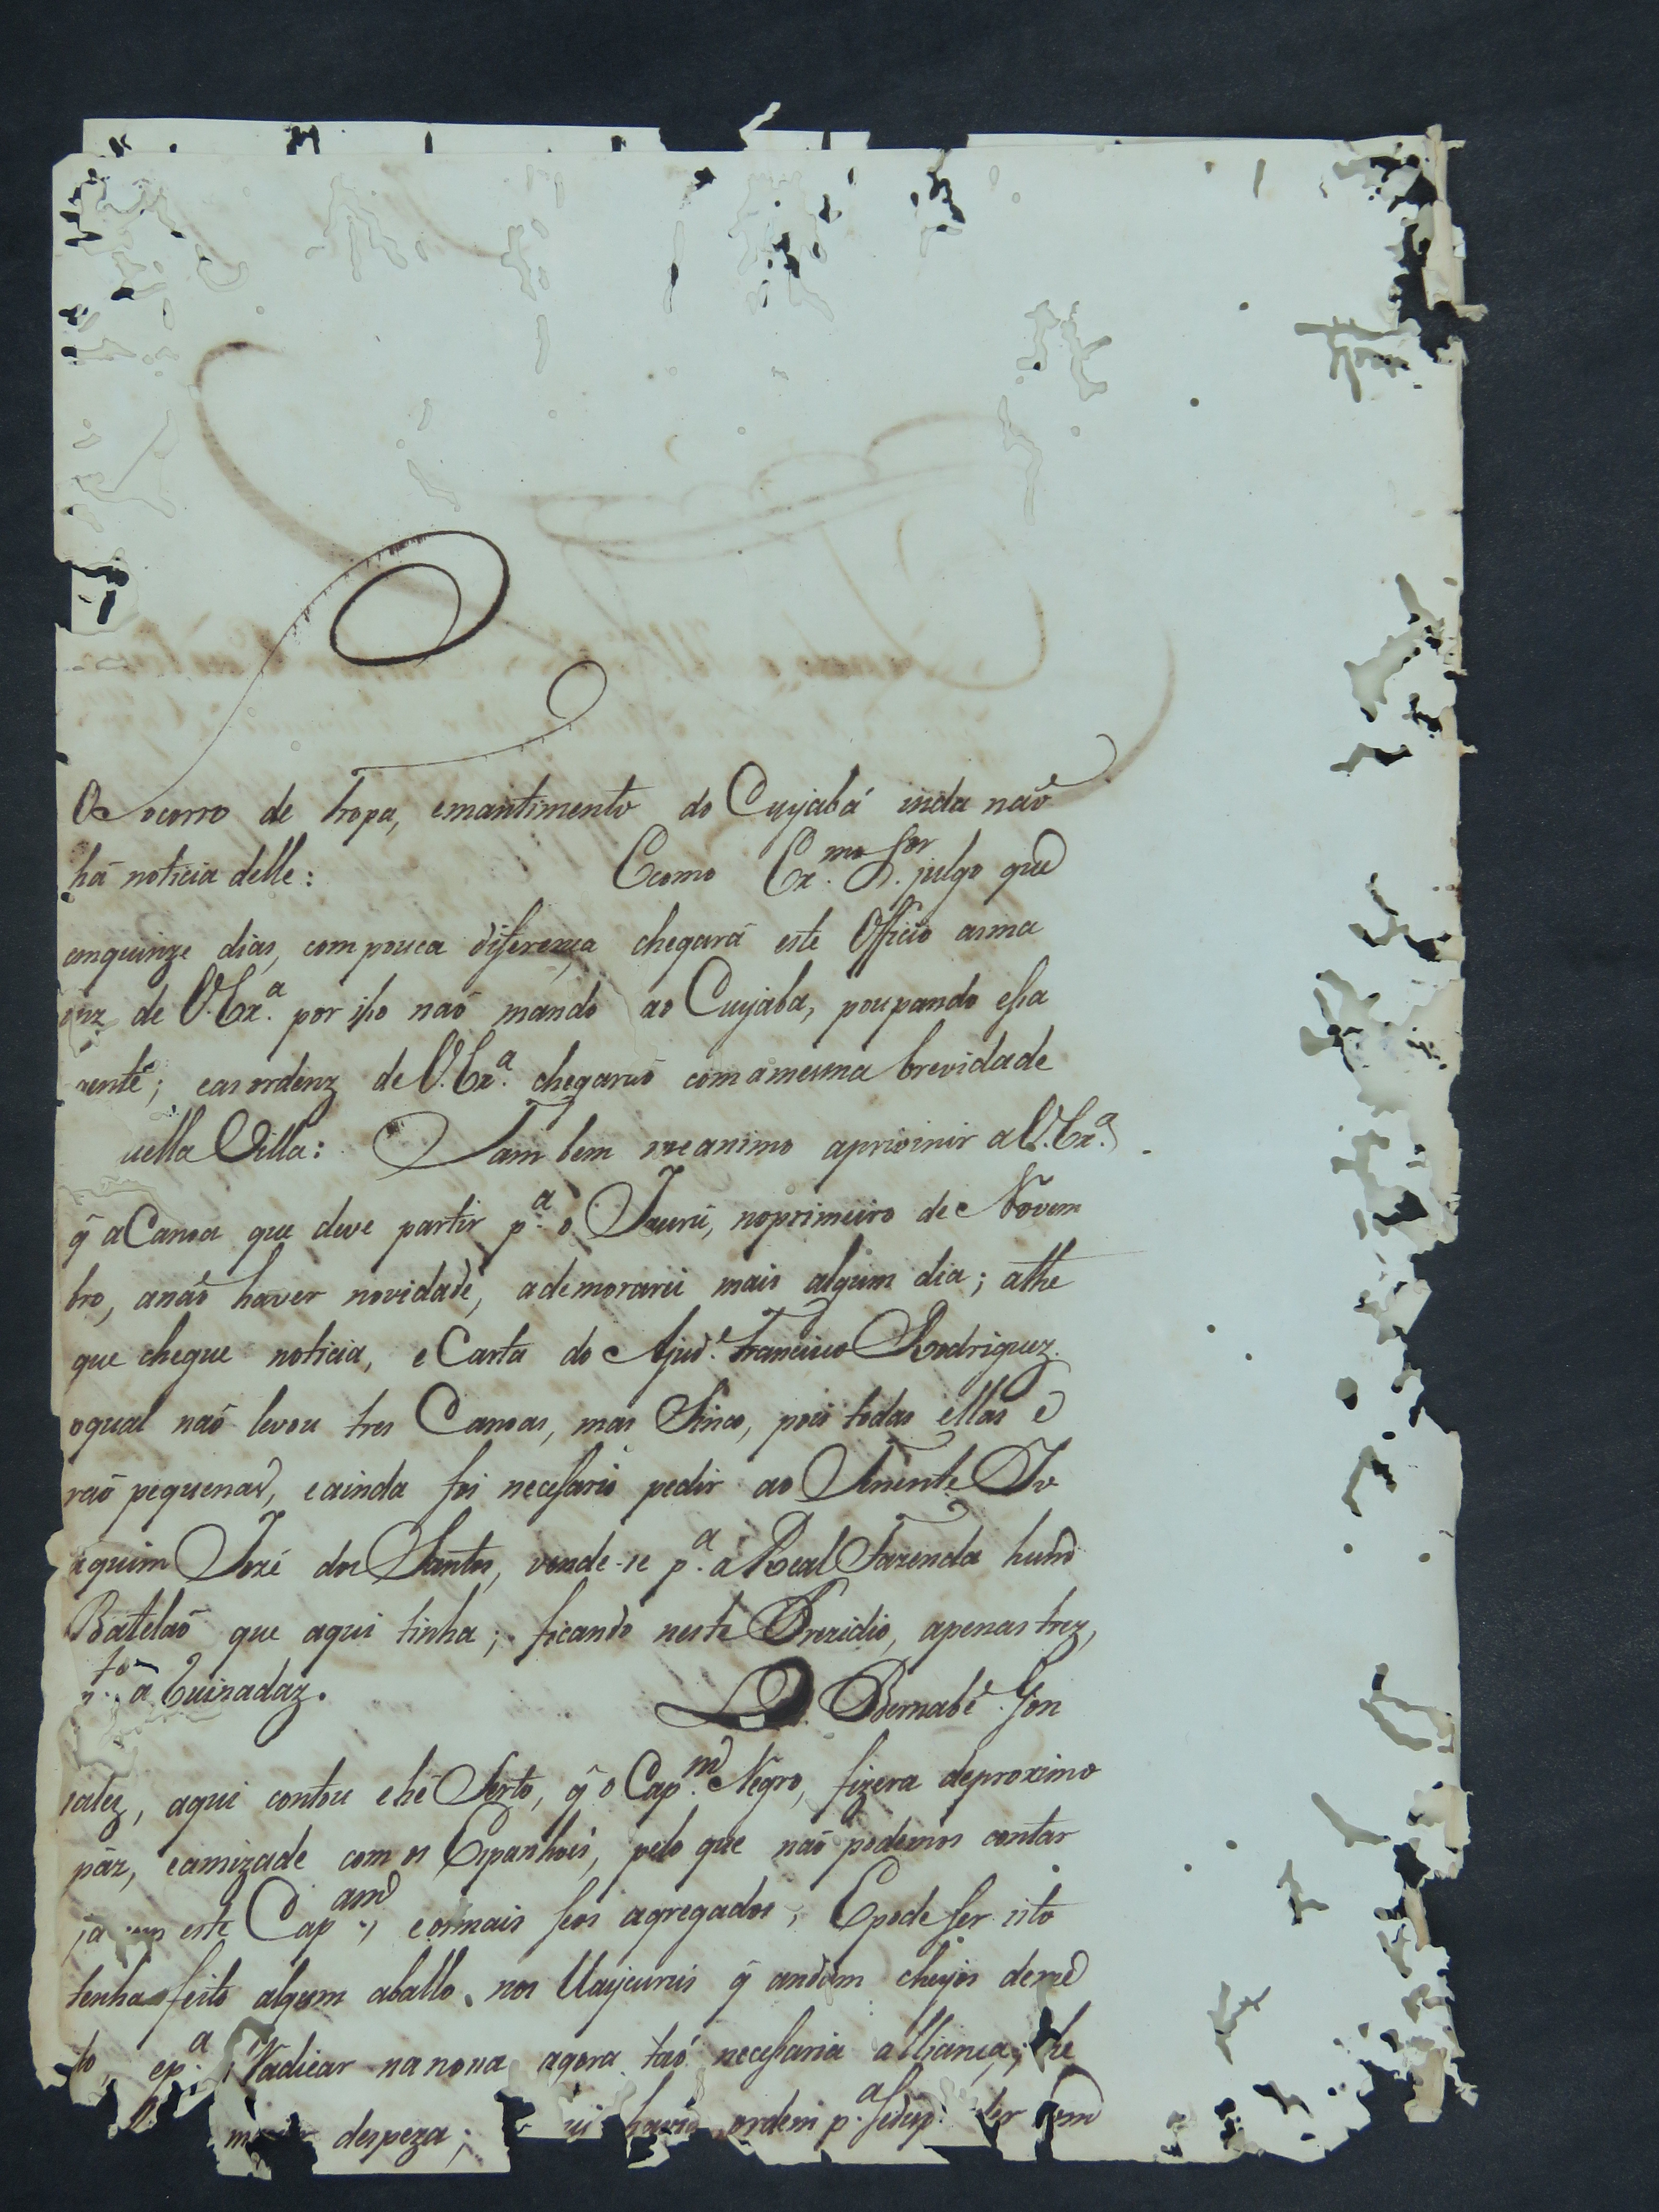 O Socorro de tropa, emantimento do Cuyabá inda naõ
há noticia delle: Ecomo Ex.mo Snr. julgo que
emquinze dias, compouca diferença chegará este Officio asma
onz de V.Exa. por isso naõ mando ao Cuyaba, poupando essa
gente; eas ordenz de V.Exa. chegaraõ comamesma brevidade
uella Villa: Tambem me animo aprivinir aV.Exa.
q̃ aCanoa que deve partir p.a o Jaurú, noprimeiro de Novem
bro, anaõ haver novidade, ademorarei mais algum dia; athe
que chegue noticia, e Carta do Ajud.e Francisco Rodriguez.
oqual naõ levou tres Canoas, mas Sinco, pois todas ellas e
raõ pequenas, eainda foi necessario pedir ao Tenente Jo
aquim José dos Santos, vende-se p.a a Real Fazenda hum
Batelaõ que aqui tinha; ficando neste Prezidio, apenas trez,
m.to arruinadaz. D. Bernabé Gon
salez, aqui contou ehé Serto, q̃ o Cap.m Negro, fizera deproximo
páz, eamizade com os Espanhois, pelo que naõ podemos contar
já com este Cap.am, eosmais seos agregados; Epode ser isto
tenha feito algum aballo, nos Uaycurus q̃ andam cheyos demed
do, ep.a Radicar nanova agora taõ necessaria alliança; he
despeza; havia ordem p.a